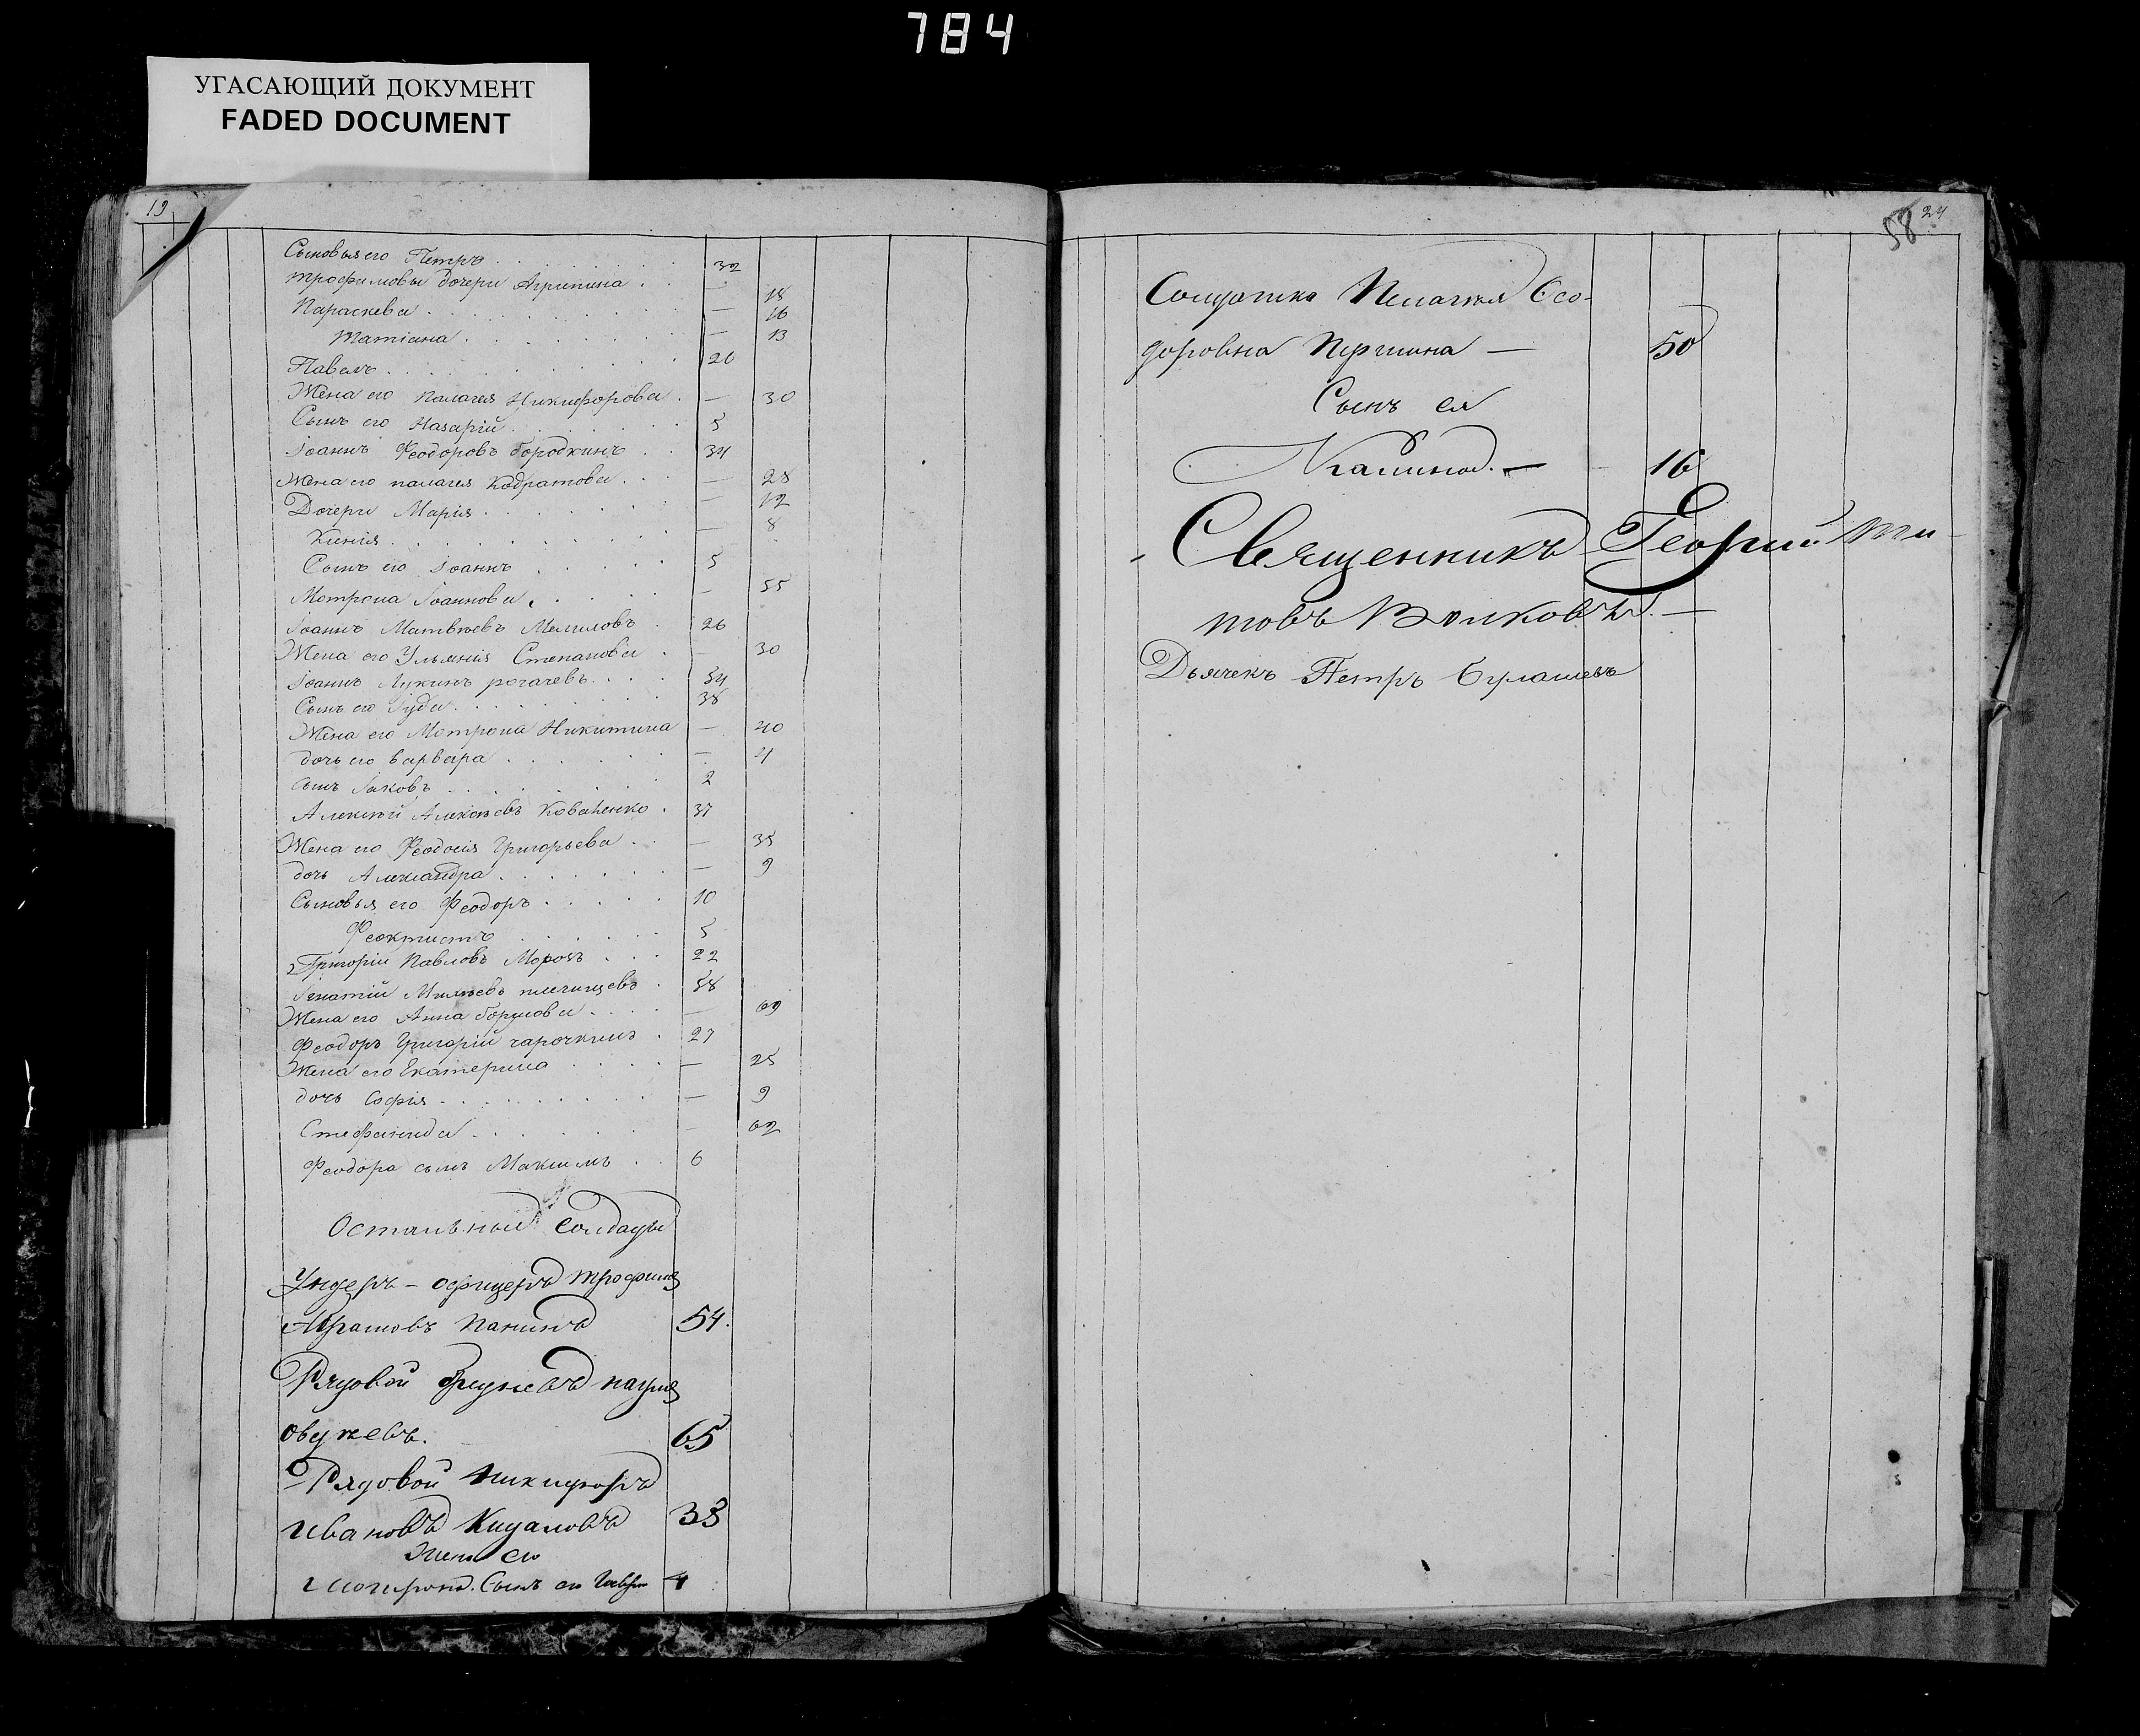 784
УГАСАЮЩИЙ ДОКУМЕНТ
FADED DOCUMENT
19
Сыновья его Петръ 32
Трофимовы дочери Агрипина — 18
Параскева — 16
Татiана — 13
Павелъ 26
Жена его Палагея Никифорова — 30
Сынъ его Назарiй 5
Iоаннъ Феодоровъ Бородкинъ 34
Жена его Палагея Кодратова — 28
Дочери Марiя — 12
Ксенiя — 8
Сынъ его Iоаннъ 5
Мотрона Iоаннова — 55
Iоаннъ Матвѣевъ 26
Жена его Ульянiя Степанова — 30
Iоаннъ Лукинъ Рогачевъ 54
Сынъ его Iуда 38
Жена его Мотрона Никитина — 40
дочь его Варвара — 4
сынъ Iаковъ 2
Алексѣй Алексѣевъ Коваленко 37
Жена его Феодосiя Григорьева — 35
дочь Александра — 9
Сыновья его Феодоръ 10
Феоктистъ 5
Григорiй Павловъ Морозъ 22
Игнатiй 58
Жена его Анна — 69
Феодоръ Григорiй 27
Жена его Екатерина — 25
дочь Софiя — 9
Стефанида — 62
Феодора сынъ Максимъ 6
Остальныи солдаты
Ундеръ-офицеръ Трофимъ
Абрамовъ Панинъ 54.
Рядовой
65
Рядовой Никифоръ
Ивановъ 33
Жена его
Мотрона. Сынъ его 4
58 24
Солдатка Пелагея Ѳео-
доровна 50
Сынъ ея
16
Священникъ Георгий Ти-
товъ Волковъ. —
Дьячекъ Петръ Булашевъ